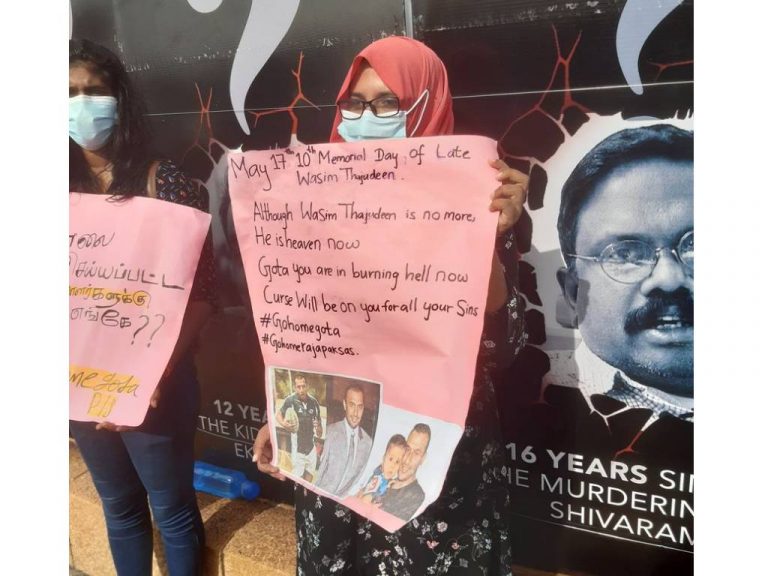 லை
செய்யப்பட்ட
ளர்களுக்கு
ங்கே ??
me gota
May 17th 10th Memorial Day of Late
Wasim Thajudeen.
Although Wasim Thajudeen is no more,
He is heaven now
Gota you are in burning hell now
Curse Will be on you for all your Sins
#Gohomegota
#Gohomerajapaksas.
12 YEA
THE KID
EK
16 YEARS SIN
HE MURDERIN
SHIVARAM